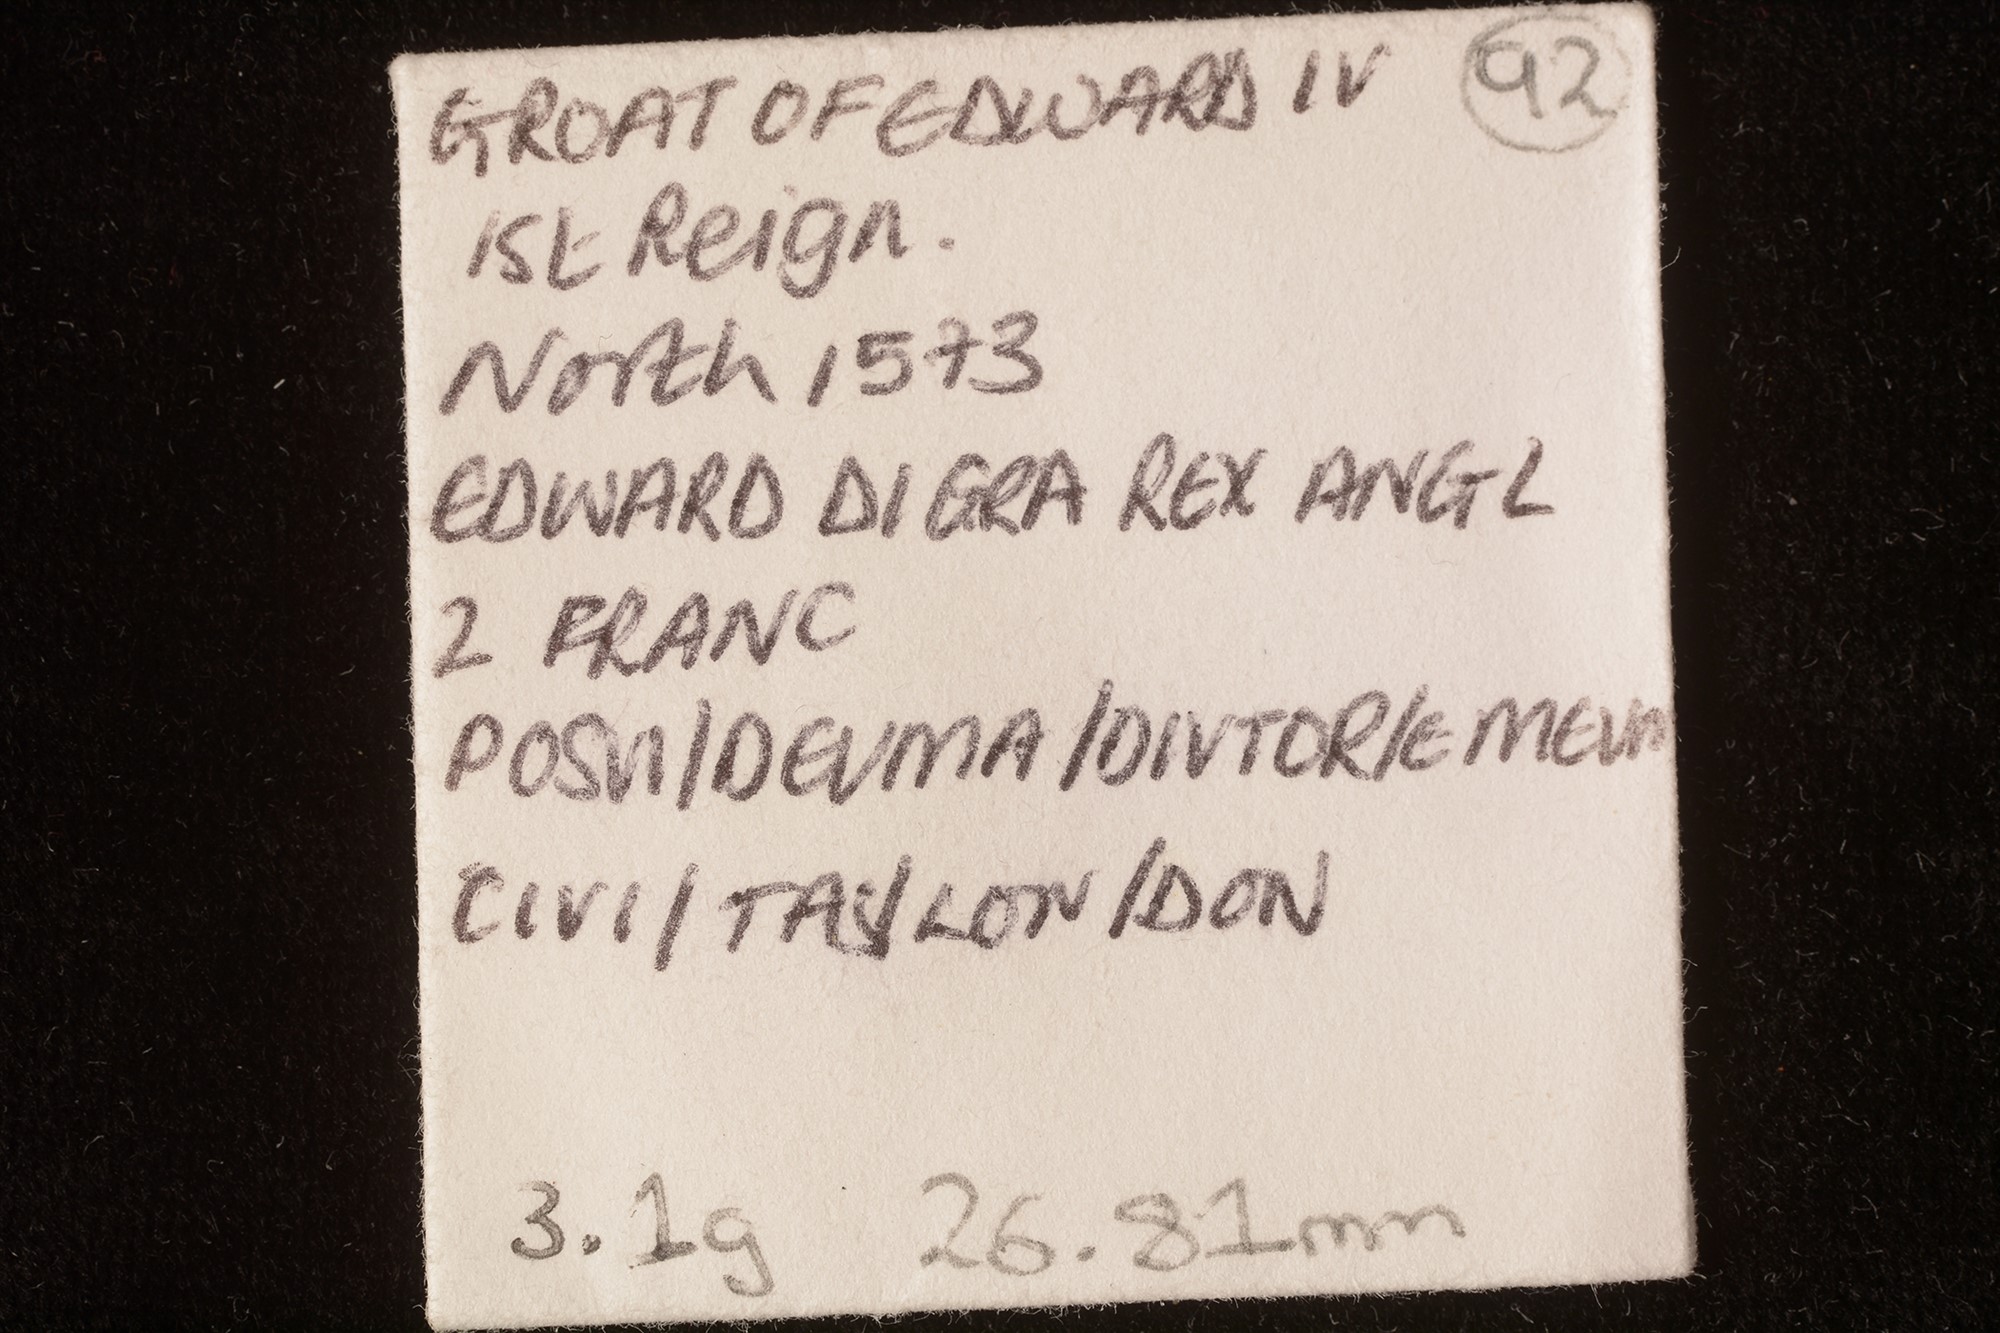 GROAT OF EDWARD IV 92
1st Reign.
North 1573
EDWARD DI GRA REX ANGL
2 FRANC
POSVI/DEVMA/DIVTOR/E MEVM
CIVI/TAS/LON/DON
3.1g 26.81mm